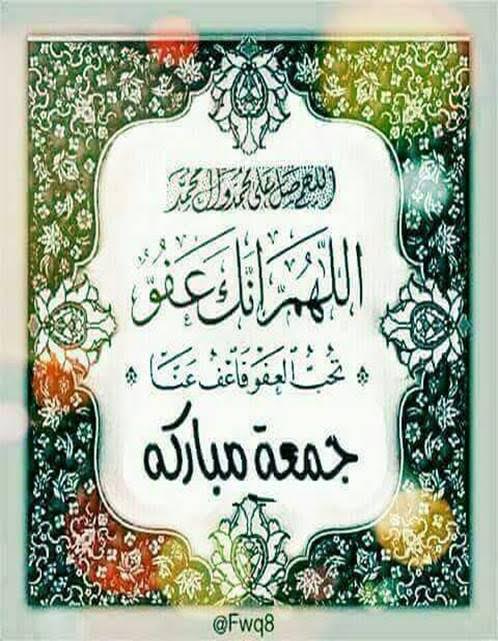 اللهم صل على محمد وال محمد
اللهم انك عفو
تحب العفو فاعف عنا
جمعة مباركه
@Fwq8